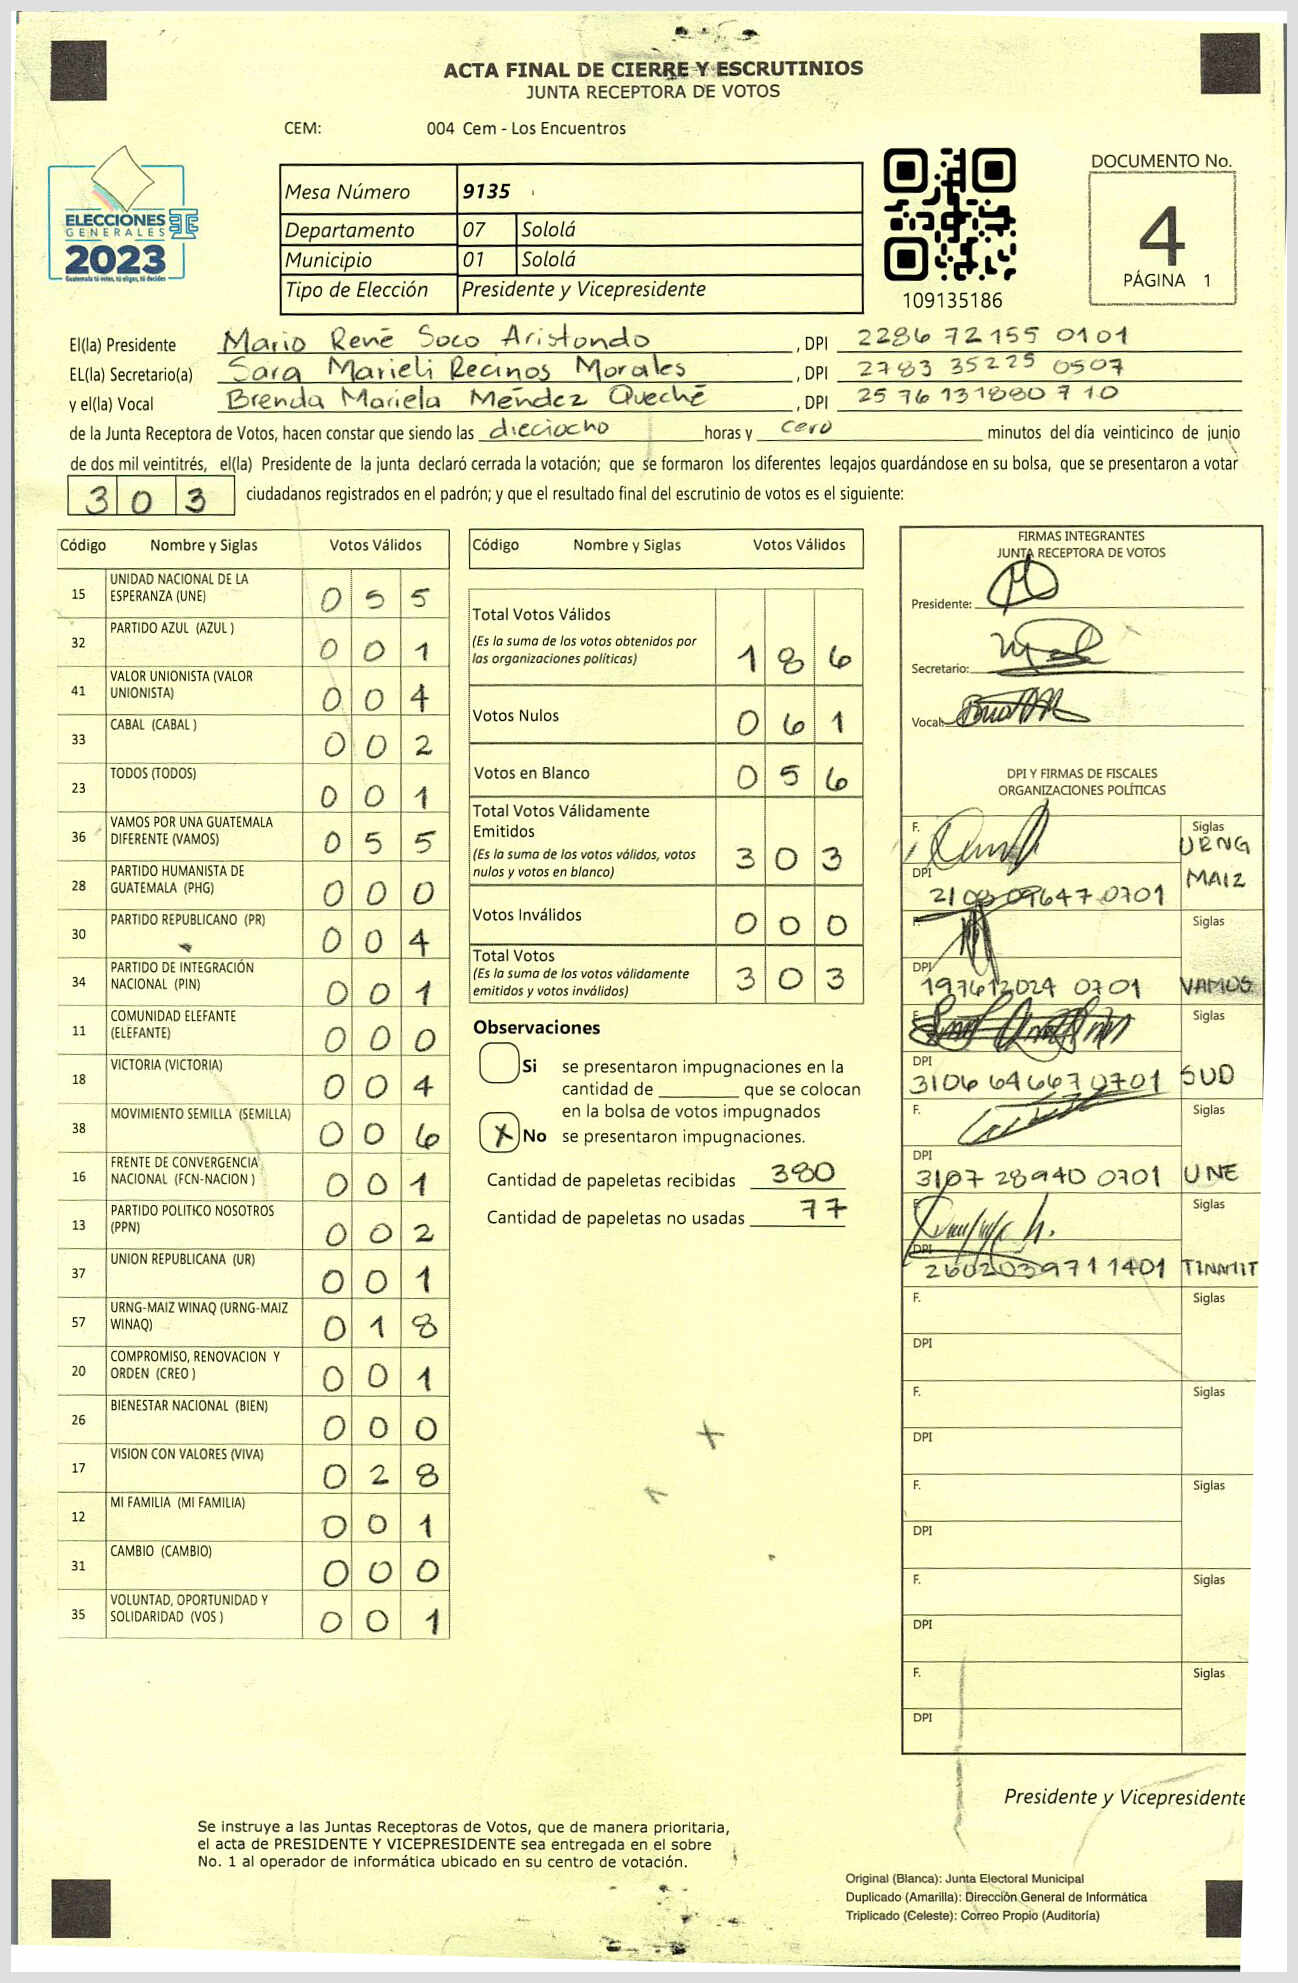 ACTA FINAL DE CIERRE Y ESCRUTINIOS
JUNTA RECEPTORA DE VOTOS
CEM: 004 Cem - Los Encuentros
ELECCIONES
GENERALES
2023
Guatemala tú votas, tú eliges, tú decides
Mesa Número 9135
Departamento 07 Sololá
Municipio 01 Sololá
Tipo de Elección Presidente y Vicepresidente
109135186
DOCUMENTO No.
4
PÁGINA 1
El(la) Presidente Mario René Soco Aristondo, DPI 2286 72155 0101
EL(la) Secretario(a) Sara Marieli Recinos Morales, DPI 2783 35225 0507
y el(la) Vocal Brenda Mariela Méndez Queché, DPI 2576 131880710
de la Junta Receptora de Votos, hacen constar que siendo las dieciocho horas y cero minutos del día veinticinco de junio
de dos mil veintitrés, el(la) Presidente de la junta declaró cerrada la votación; que se formaron los diferentes legajos guardándose en su bolsa, que se presentaron a votar
303 ciudadanos registrados en el padrón; y que el resultado final del escrutinio de votos es el siguiente:
Código Nombre y Siglas Votos Válidos
15 UNIDAD NACIONAL DE LA ESPERANZA (UNE) 0 5 5
32 PARTIDO AZUL (AZUL ) 0 0 1
41 VALOR UNIONISTA (VALOR UNIONISTA) 0 0 4
33 CABAL (CABAL ) 0 0 2
23 TODOS (TODOS) 0 0 1
36 VAMOS POR UNA GUATEMALA DIFERENTE (VAMOS) 0 5 5
28 PARTIDO HUMANISTA DE GUATEMALA (PHG) 0 0 0
30 PARTIDO REPUBLICANO (PR) 0 0 4
34 PARTIDO DE INTEGRACIÓN NACIONAL (PIN) 0 0 1
11 COMUNIDAD ELEFANTE (ELEFANTE) 0 0 0
18 VICTORIA (VICTORIA) 0 0 4
38 MOVIMIENTO SEMILLA (SEMILLA) 0 0 6
16 FRENTE DE CONVERGENCIA NACIONAL (FCN-NACION ) 0 0 1
13 PARTIDO POLITICO NOSOTROS (PPN) 0 0 2
37 UNION REPUBLICANA (UR) 0 0 1
57 URNG-MAIZ WINAQ (URNG-MAIZ WINAQ) 0 1 8
20 COMPROMISO, RENOVACION Y ORDEN (CREO ) 0 0 1
26 BIENESTAR NACIONAL (BIEN) 0 0 0
17 VISION CON VALORES (VIVA) 0 2 8
12 MI FAMILIA (MI FAMILIA) 0 0 1
31 CAMBIO (CAMBIO) 0 0 0
35 VOLUNTAD, OPORTUNIDAD Y SOLIDARIDAD (VOS ) 0 0 1
Código Nombre y Siglas Votos Válidos
Total Votos Válidos 1 8 6
(Es la suma de los votos obtenidos por
las organizaciones políticas)
Votos Nulos 0 6 1
Votos en Blanco 0 5 6
Total Votos Válidamente
Emitidos 3 0 3
(Es la suma de los votos válidos, votos
nulos y votos en blanco)
Votos Inválidos 0 0 0
Total Votos 3 0 3
(Es la suma de los votos válidamente
emitidos y votos inválidos)
Observaciones
Si se presentaron impugnaciones en la
cantidad de ________ que se colocan
en la bolsa de votos impugnados
X No se presentaron impugnaciones.
Cantidad de papeletas recibidas 380
Cantidad de papeletas no usadas 77
FIRMAS INTEGRANTES
JUNTA RECEPTORA DE VOTOS
Presidente:
Secretario:
Vocal:
DPI Y FIRMAS DE FISCALES
ORGANIZACIONES POLÍTICAS
F. Siglas URNG
MAIZ
DPI 2103 09647 0701
F. Siglas
DPI 197612024 0701 VAMOS
F. Siglas
DPI 3106 64667 0701 SUD
F. Siglas
DPI 3107 28940 0701 UNE
F. Siglas
DPI 2602039711401 TINAMIT
F. Siglas
DPI
F. Siglas
DPI
F. Siglas
DPI
F. Siglas
DPI
F. Siglas
DPI
Presidente y Vicepresidente
Se instruye a las Juntas Receptoras de Votos, que de manera prioritaria,
el acta de PRESIDENTE Y VICEPRESIDENTE sea entregada en el sobre
No. 1 al operador de informática ubicado en su centro de votación.
Original (Blanca): Junta Electoral Municipal
Duplicado (Amarilla): Dirección General de Informática
Triplicado (Celeste): Correo Propio (Auditoría)